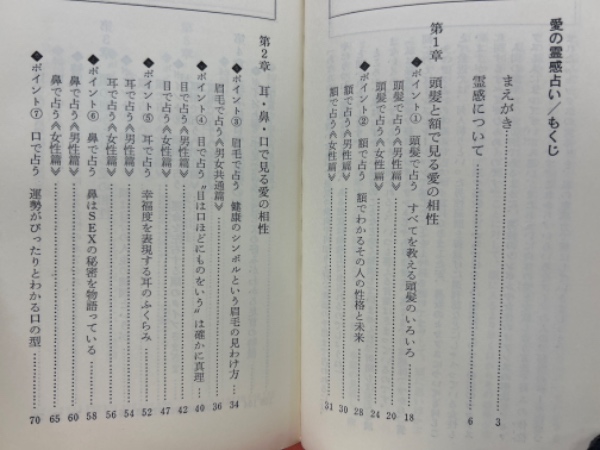 愛の霊感占い／もくじ
まえがき…………3
霊感について…………6
第1章　頭髪と額で見る愛の相性
◆ポイント①　頭髪で占う　すべてを教える頭髪のいろいろ…………18
頭髪で占う《男性篇》…………20
頭髪で占う《女性篇》…………24
◆ポイント②　額で占う　額でわかるその人の性格と未来…………28
額で占う《男性篇》…………30
額で占う《女性篇》…………31
第2章　耳・鼻・口で見る愛の相性
◆ポイント③　眉毛で占う　健康のシンボルという眉毛の見わけ方…………34
眉毛で占う《男女共通篇》…………36
◆ポイント④　目で占う　〝目は口ほどにものをいう〟は確かに真理…………40
目で占う《男性篇》…………42
目で占う《女性篇》…………47
◆ポイント⑤　耳で占う　幸福度を表現する耳のふくらみ…………52
耳で占う《男性篇》…………54
耳で占う《女性篇》…………56
◆ポイント⑥　鼻で占う　鼻はSEXの秘密を物語っている…………58
鼻で占う《男性篇》…………60
鼻で占う《女性篇》…………65
◆ポイント⑦　口で占う　運勢がぴったりとわかる口の型…………70